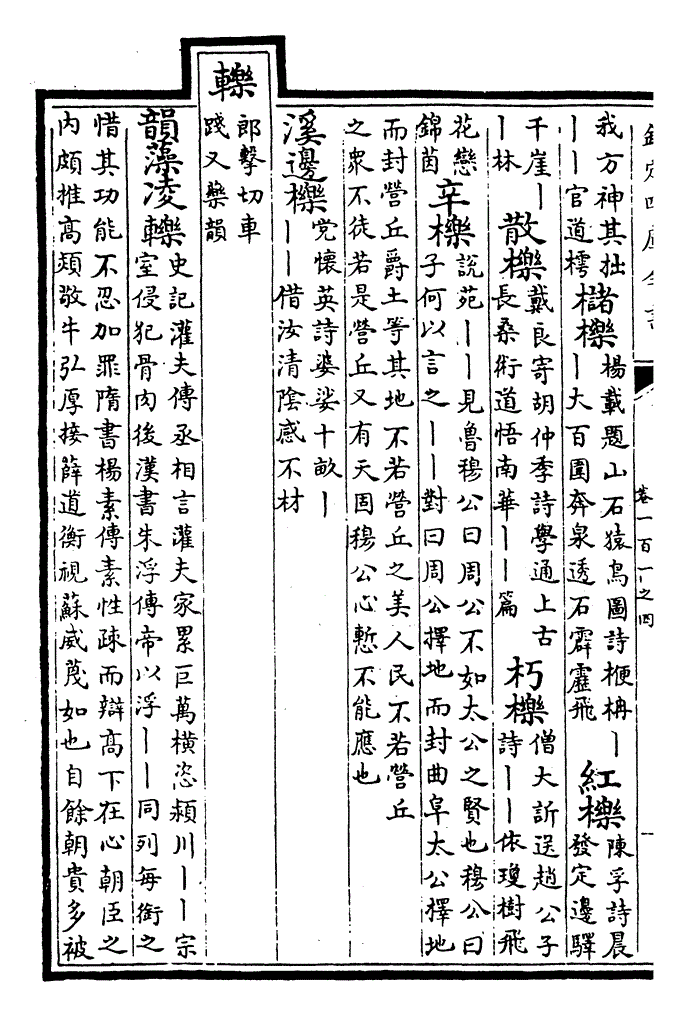 欽定四庫全書
卷一百一之四
我方神其拙
丨丨官道樗
櫧櫟
楊載題山石猿鳥圖詩楩枏丨
丨大百圍奔泉透石霹靂飛
紅櫟
陳孚詩晨
發定邊驛
千崖丨
丨林
散櫟
戴良寄胡仲季詩學通上古
長桑術道悟南華丨丨篇
朽櫟
僧大訢送趙公子
詩丨丨依瓊樹飛
花戀
錦茵
辛櫟
說苑丨丨見魯穆公曰周公不如太公之賢也穆公曰
子何以言之丨丨對曰周公擇地而封曲阜太公擇地
而封營丘爵土等其地不若營丘之美人民不若營丘
之衆不徒若是營丘又有天固穆公心慙不能應也
溪邊櫟
党懷英詩婆娑十畝丨
丨丨借汝清陰感不材
轢
郎擊切車
踐又藥韻
韻藻凌轢
史記灌夫傳丞相言灌夫家累巨萬橫恣潁川丨丨宗
室侵犯骨肉後漢書朱浮傳帝以浮丨丨同列每銜之
惜其功能不忍加罪隋書楊素傳素性疎而辯高下在心朝臣之
內頗推高熲敬牛弘厚接薛道衡視蘇威蔑如也自餘朝貴多被